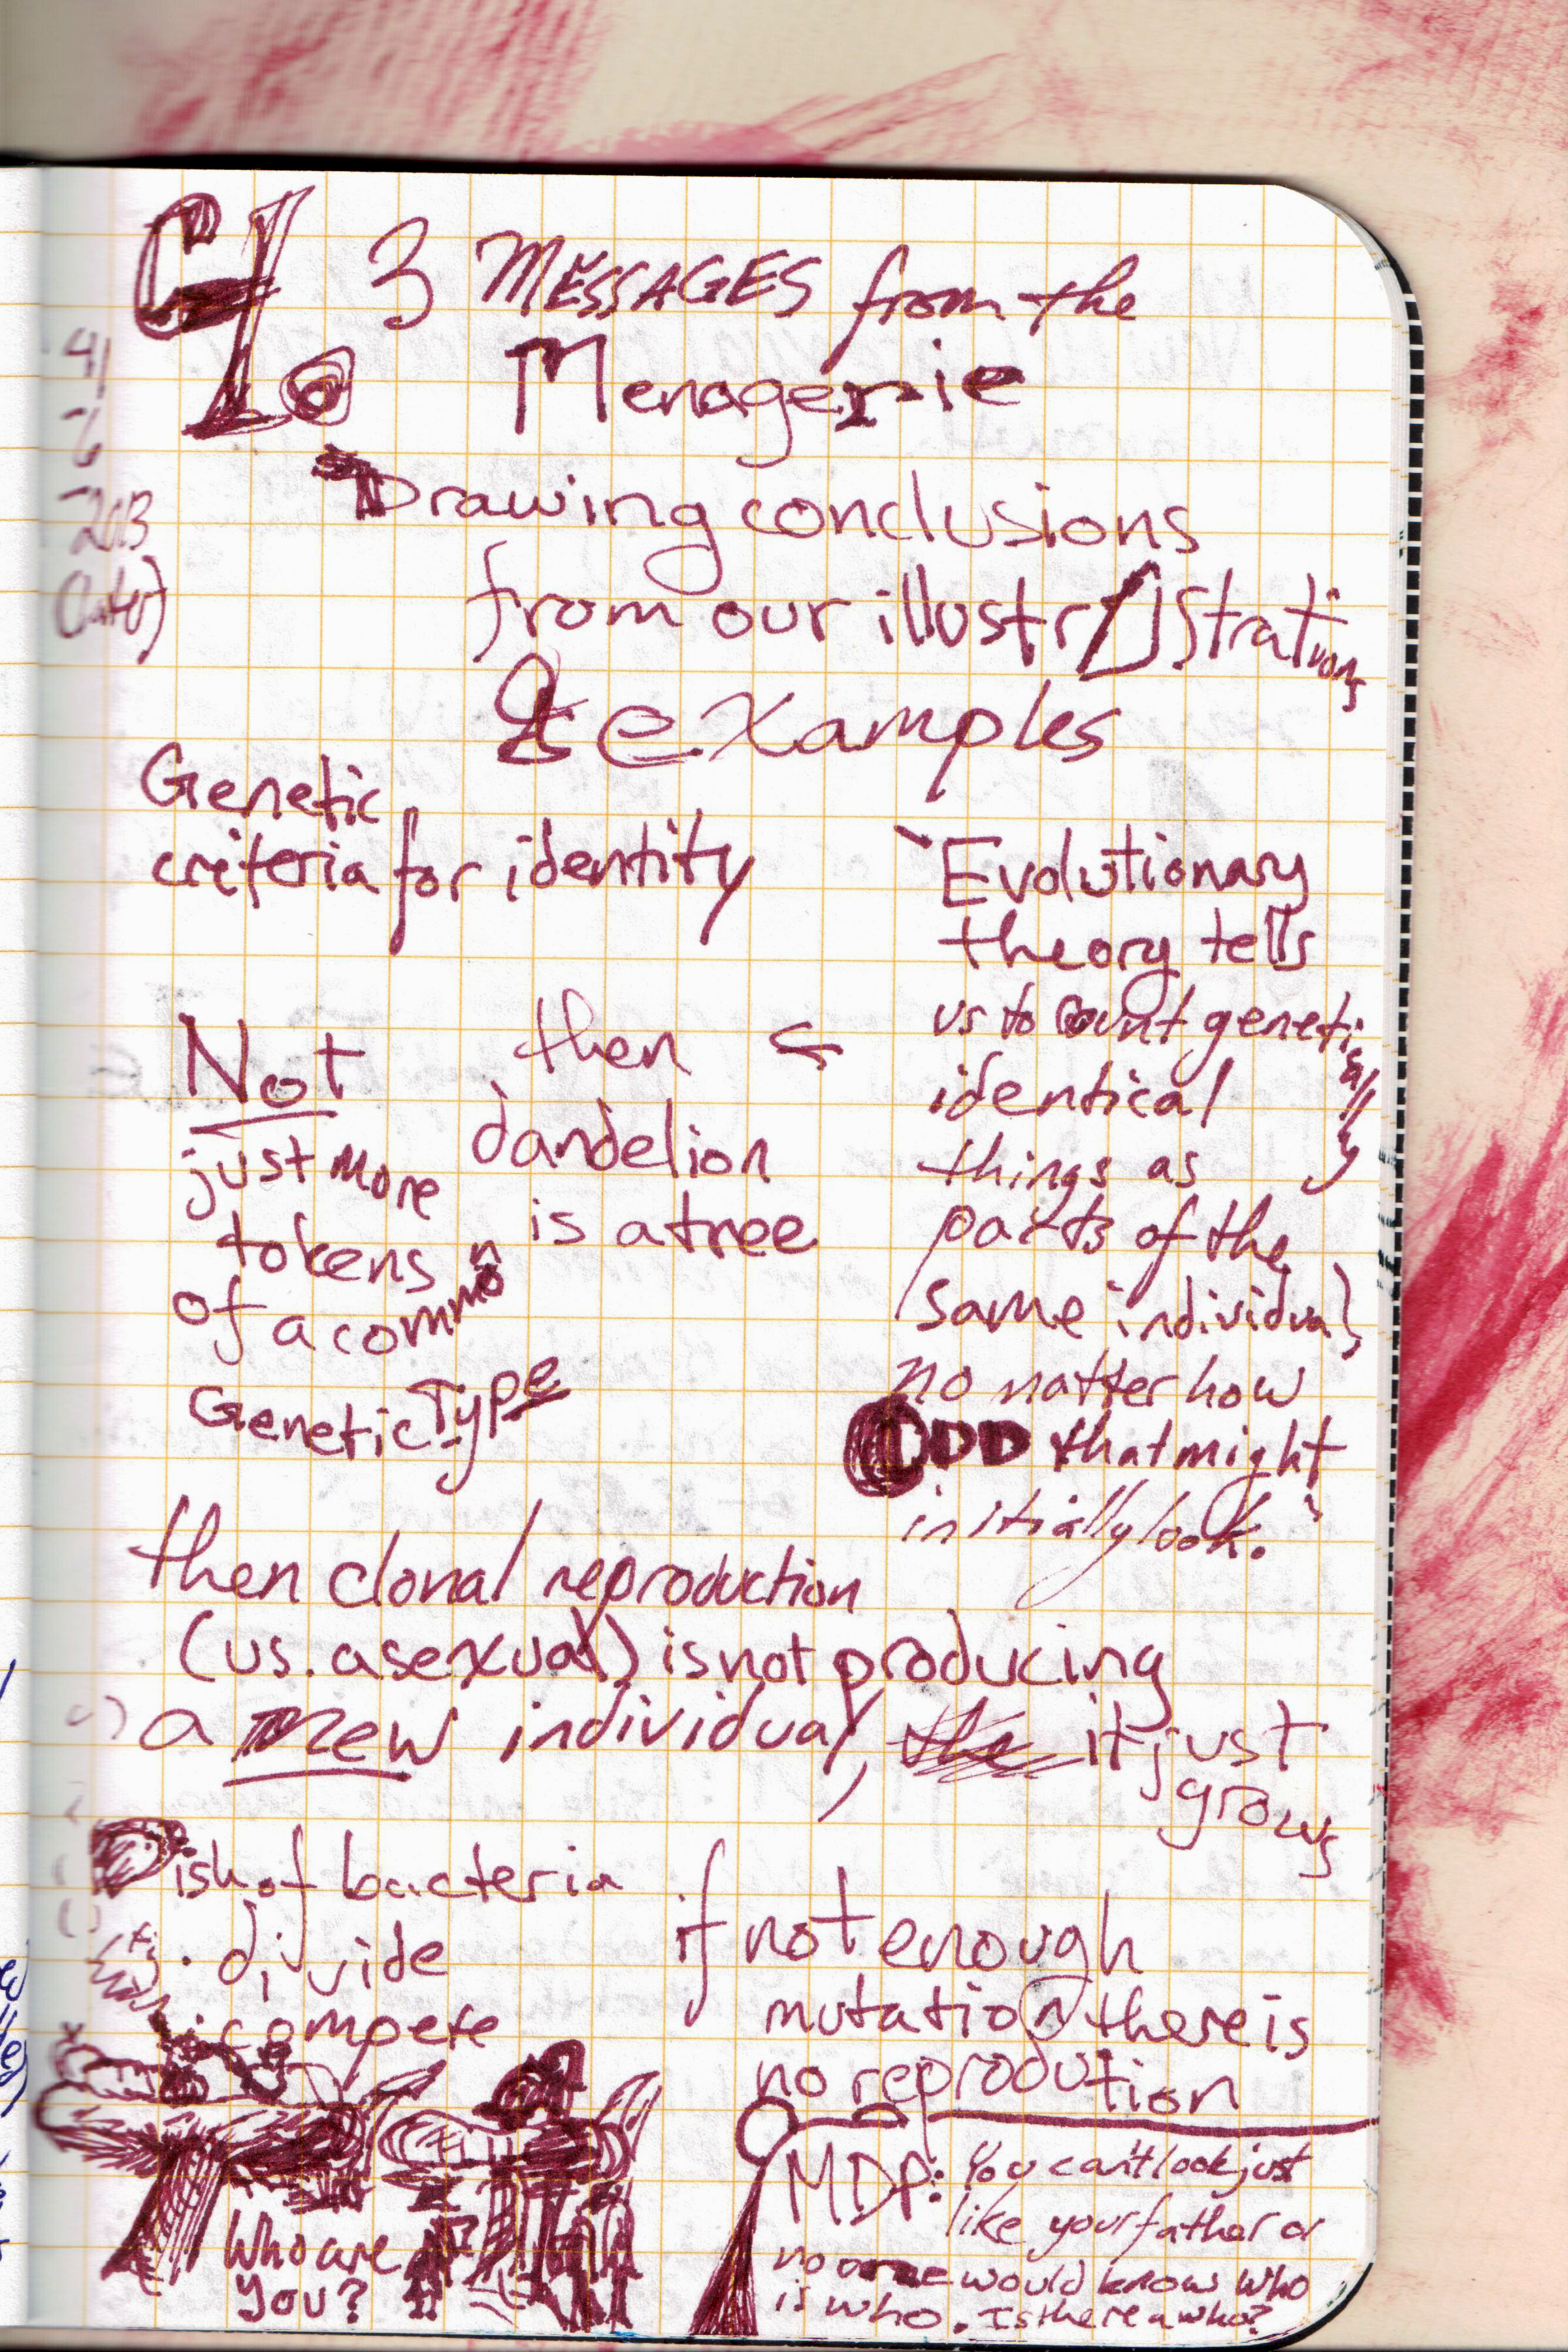 GI
3 MESSAGES from the
Menagerie
4/
-6
-2013
(later)
Drawing conclusions
from our illustr strations
& examples
Genetic
criteria for identity
"Evolutionary
theory tells
us to count genetically
identical
things as
parts of the
same individual,
no matter how
ODD that might
initially look."
then
dandelion
is a tree
Not
just more
tokens
of a common
Genetic Type
then clonal reproduction
(vs. asexual) is not producing
a new individual, the it just
grows
Dish of bacteria
divide
compete
if not enough
mutation there is
no reprodution
Who are
you?
MDP: You can't look just
like your father or
no one would know who
is who. Is there a who?